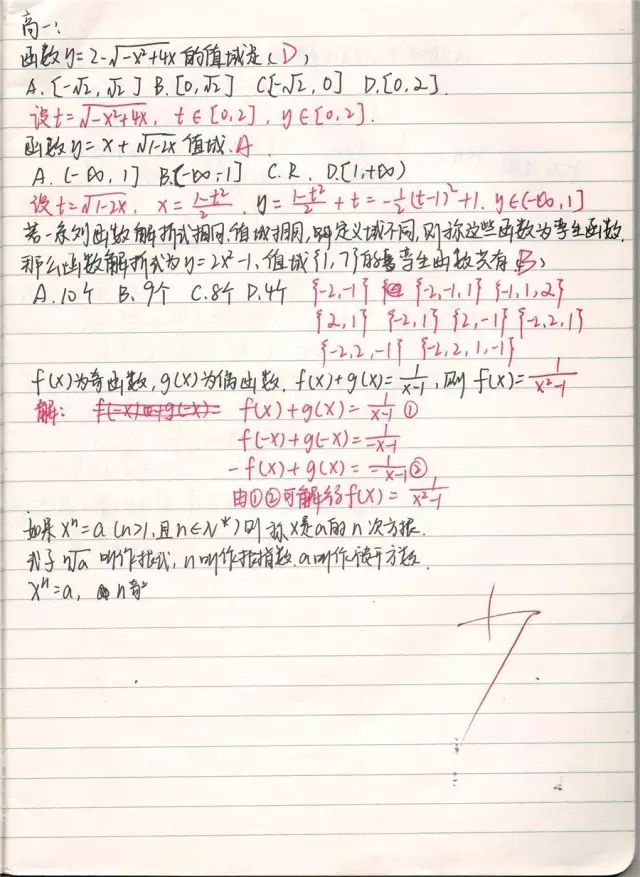 高一:
函数y=2-√(-x²+4x) 的值域是(D)
A.[-√2,√2] B.[0,√2] C[-√2,0] D.[0,2].
设t=√(-x²+4x), t∈[0,2], y∈[0,2].
函数y=x+√(1-2x) 值域.A
A.(-∞,1] B.[-∞,-1] C.R. D.[1,+∞)
设t=√(1-2x), x=(1-t²)/2, y=(1-t²)/2+t=-½(t-1)²+1. y∈(-∞,1]
若一系列函数解析式相同,值域相同,定义域不同,则称这些函数为孪生函数,
那么函数解析式为y=2x²-1,值域{1,7}的孪生函数共有(B)
A.10个 B.9个 C.8个 D.4个 {-2,-1} {-2,-1,1} {-1,1,2}
{2,1} {-2,1} {2,-1} {-2,2,1}
{-2,2,-1} {-2,2,1,-1}
f(x)为奇函数,g(x)为偶函数,f(x)+g(x)=1/(x-1),则f(x)=1/(x²-1)
解: f(-x)+g(-x)= f(x)+g(x)=1/(x-1) ①
f(-x)+g(-x)=1/(-x-1)
-f(x)+g(x)=1/(-x-1) ②
由①②可解得f(x)=1/(x²-1)
如果xⁿ=a(n>1,且n∈N*)则称x是a的n次方根.
式子ⁿ√a 叫作根式,n叫作根指数,a叫作被开方数.
xⁿ=a, n奇